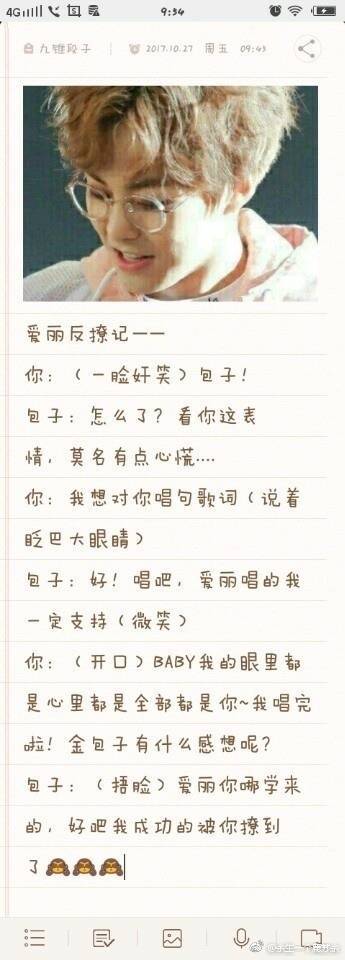 4G 9:34
九锤段子 2017.10.27 周五 09:43
爱丽反撩记——
你：（一脸奸笑）包子！
包子：怎么了？看你这表
情，莫名有点心慌....
你：我想对你唱句歌词（说着
眨巴大眼睛）
包子：好！唱吧，爱丽唱的我
一定支持（微笑）
你：（开口）BABY我的眼里都
是心里都是全部都是你~我唱完
啦！金包子有什么感想呢？
包子：（捂脸）爱丽你哪学来
的，好吧我成功的被你撩到
了🙈🙈🙈